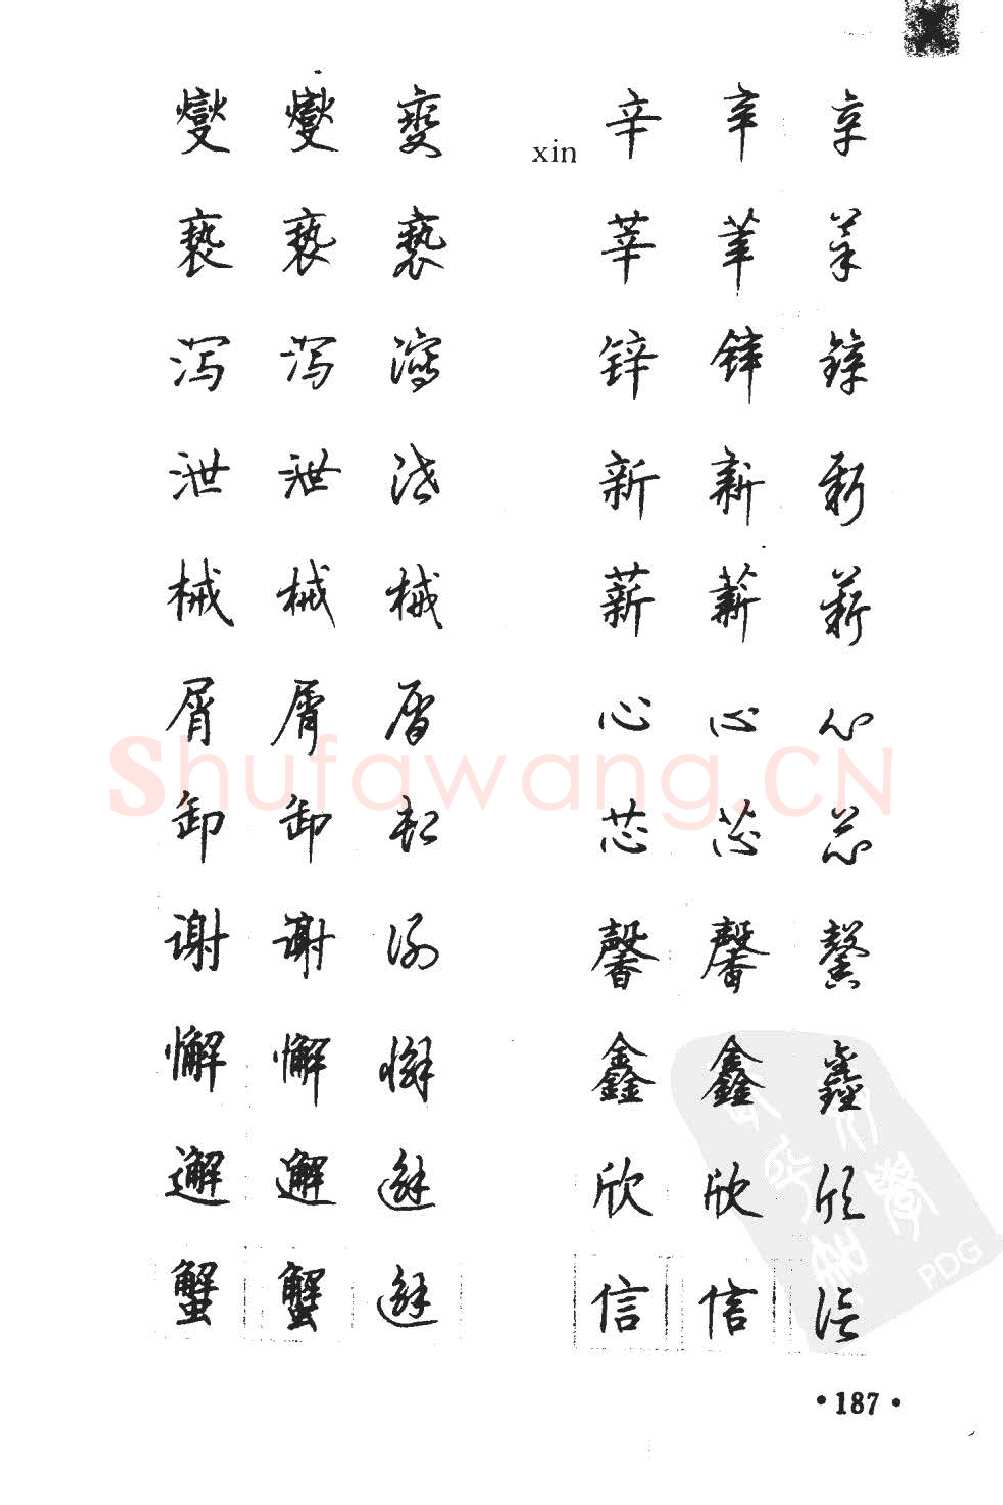 燮 燮 燮 xin 辛 辛 辛
亵 亵 亵 莘 莘 莘
泻 泻 瀉 锌 锌 鋅
泄 泄 泄 新 新 新
械 械 械 薪 薪 薪
屑 屑 屑 心 心 心
卸 卸 卸 芯 芯 芯
谢 谢 谢 馨 馨 馨
懈 懈 懈 鑫 鑫 鑫
邂 邂 邂 欣 欣 欣
蟹 蟹 邂 信 信 信
Shufawang.CN
PDG
•187•